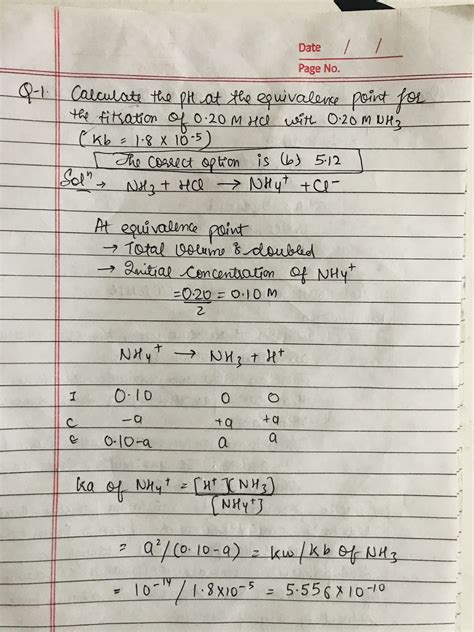 Date / /
Page No.
Q-1. Calculate the pH at the equivalence point for
the titration of 0.20 M HCl with 0.20 M NH3
(Kb = 1.8 × 10⁻⁵)
The correct option is (b) 5.12
Solⁿ → NH3 + HCl → NH4⁺ + Cl⁻
At equivalence point
→ Total volume is doubled
→ Initial concentration of NH4⁺
= 0.20/2 = 0.10 M
NH4⁺ → NH3 + H⁺
I 0.10 0 0
C -a +a +a
E 0.10-a a a
Ka of NH4⁺ = [H⁺][NH3]/[NH4⁺]
= a²/(0.10-a) = kw/kb of NH3
= 10⁻¹⁴/1.8×10⁻⁵ = 5.556×10⁻¹⁰